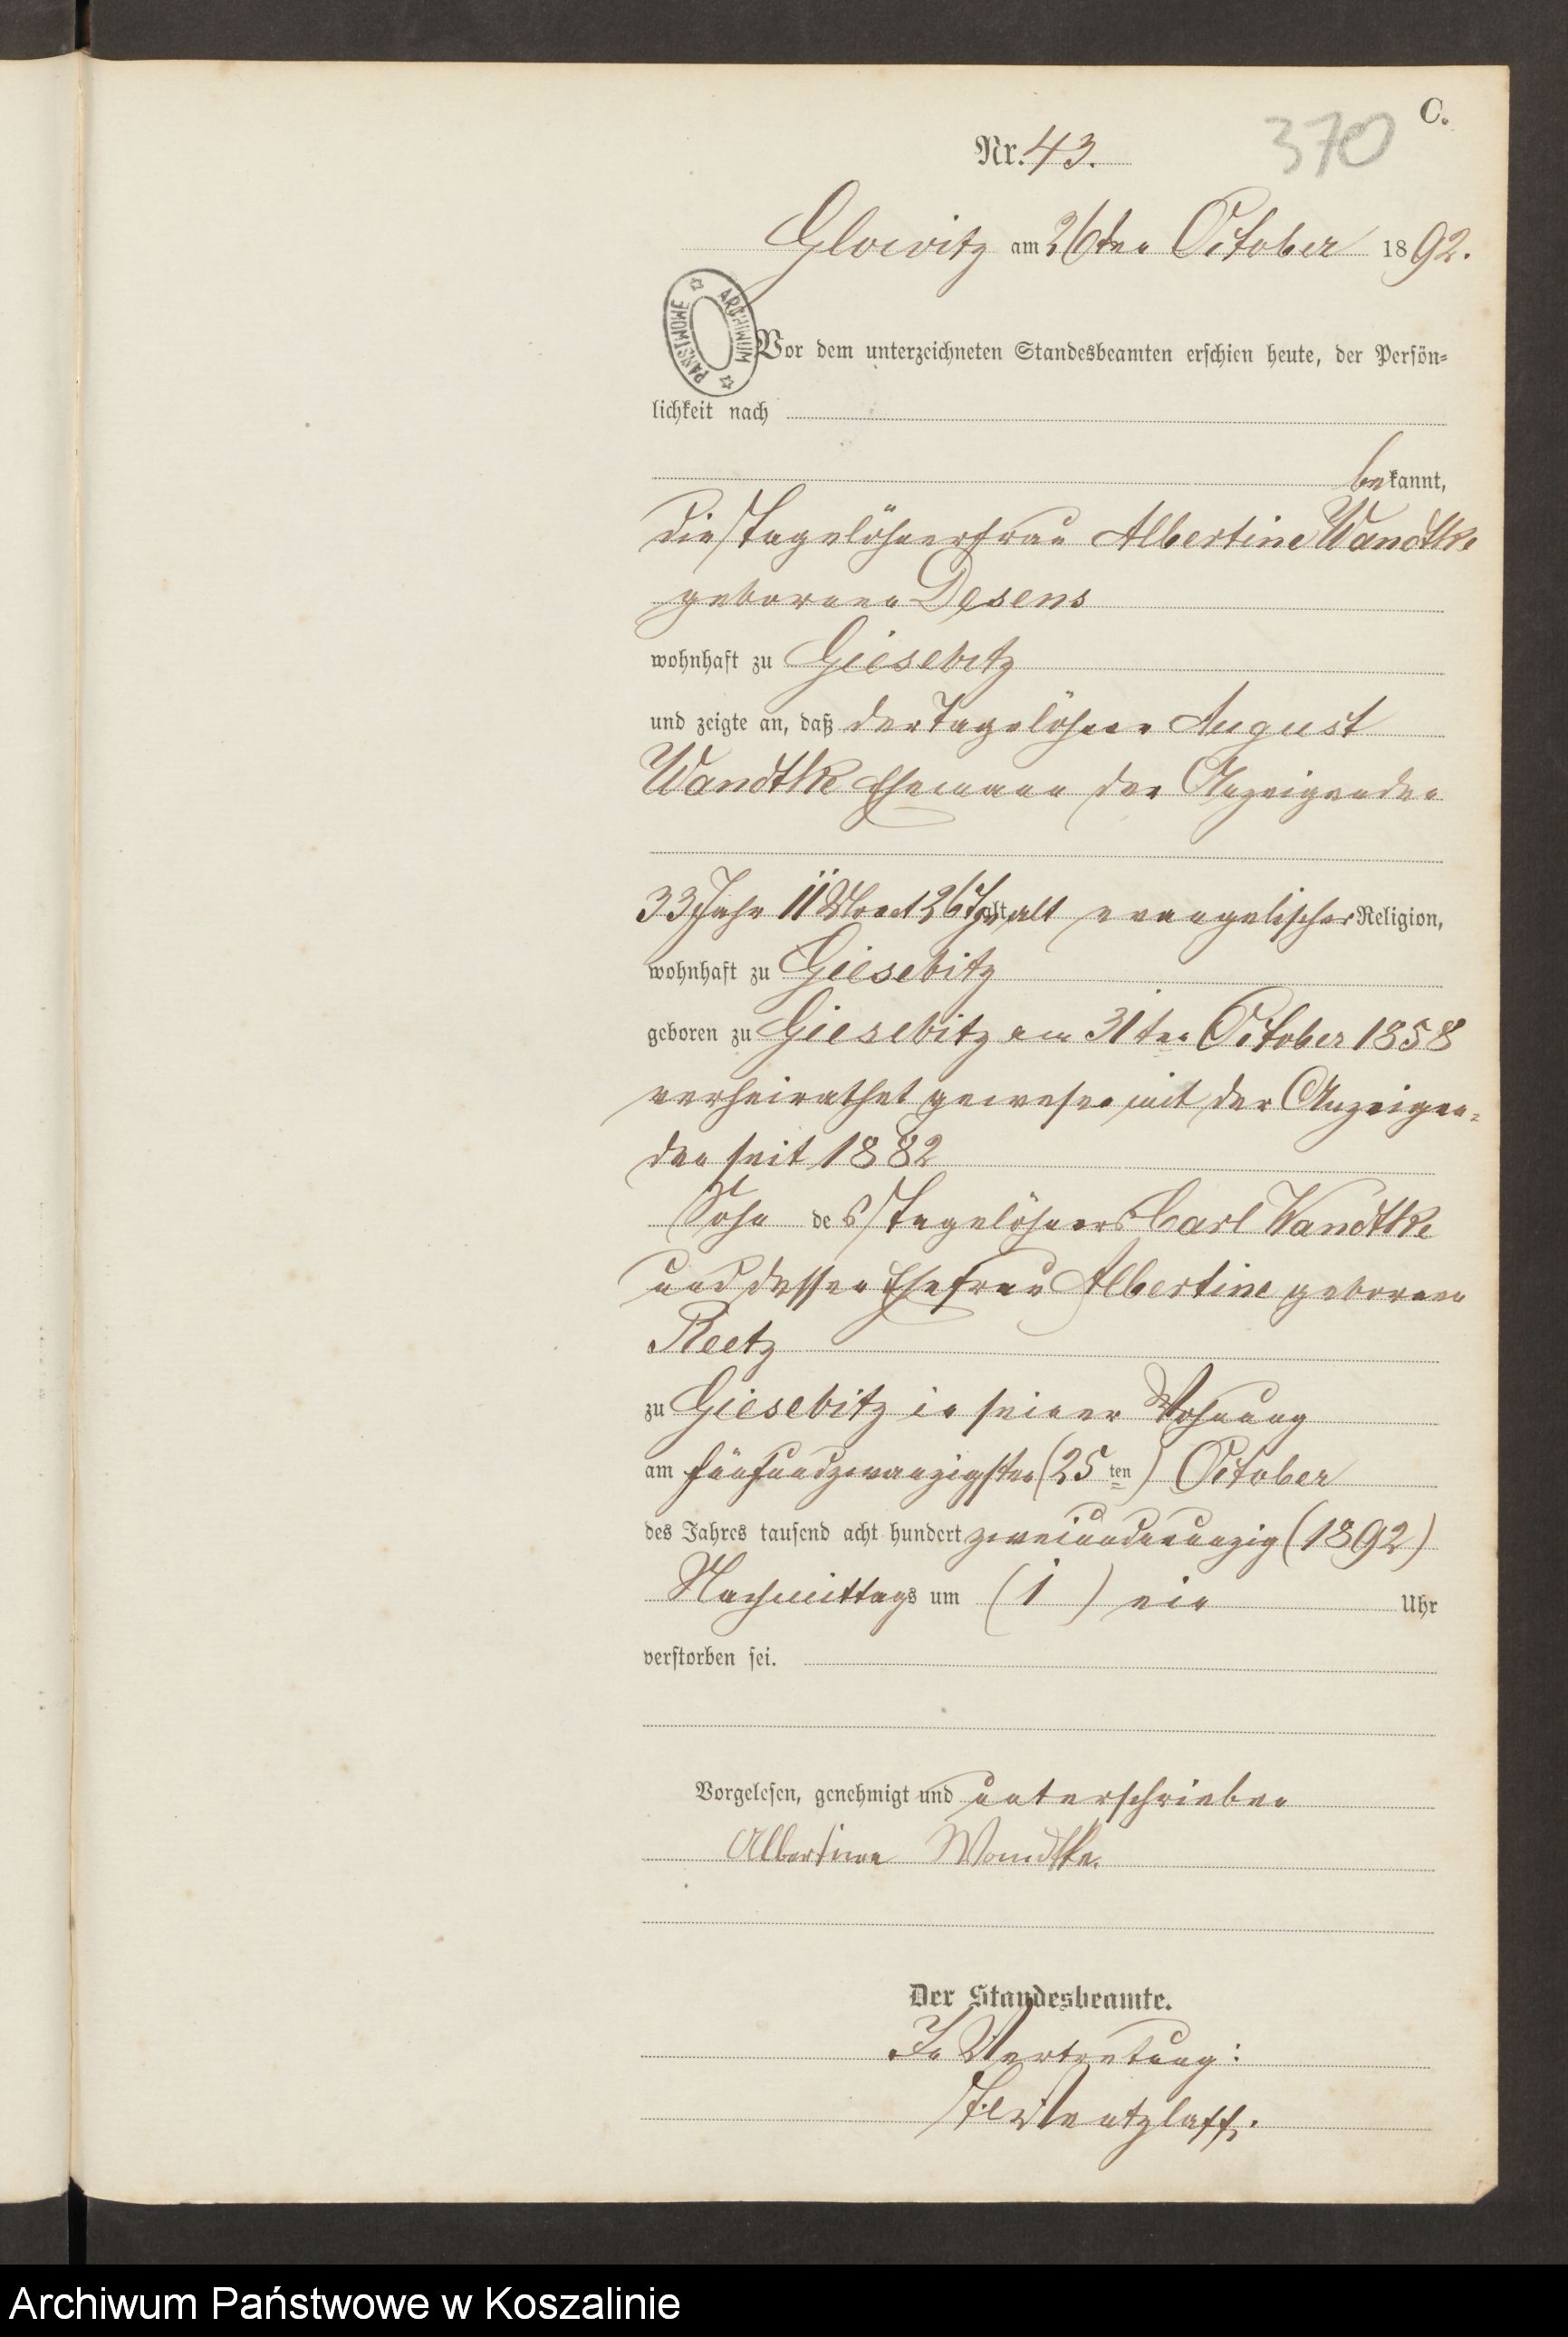 C.
370
Nr. 43.
Glowitz am 26ten October 1892.
ARCHIWUM PAŃSTWOWE
Vor dem unterzeichneten Standesbeamten erschien heute, der Persön-
lichkeit nach
bekannt,
die Tagelöhnerfrau Albertine Wandtke
geborene Desens
wohnhaft zu Giesebitz
und zeigte an, daß der Tagelöhner August
Wandtke Ehemann der Anzeigenden
33 Jahr 11 Monat 26 Tg alt alt evangelischer Religion,
wohnhaft zu Giesebitz
geboren zu Giesebitz am 31ten October 1858
verheirathet gewesen mit der Anzeigen-
den seit 1882
Sohn des Tagelöhners Carl Wandtke
und dessen Ehefrau Albertine geborene
Reetz
zu Giesebitz in seiner Wohnung
am fünfundzwanzigsten (25ten) October
des Jahres tausend acht hundert zweiundneunzig (1892)
Nachmittags um (1) ein Uhr
verstorben sei.
Vorgelesen, genehmigt und unterschrieben
Albertine Wandtke.
Der Standesbeamte.
In Vertretung:
Archiwum Państwowe w Koszalinie